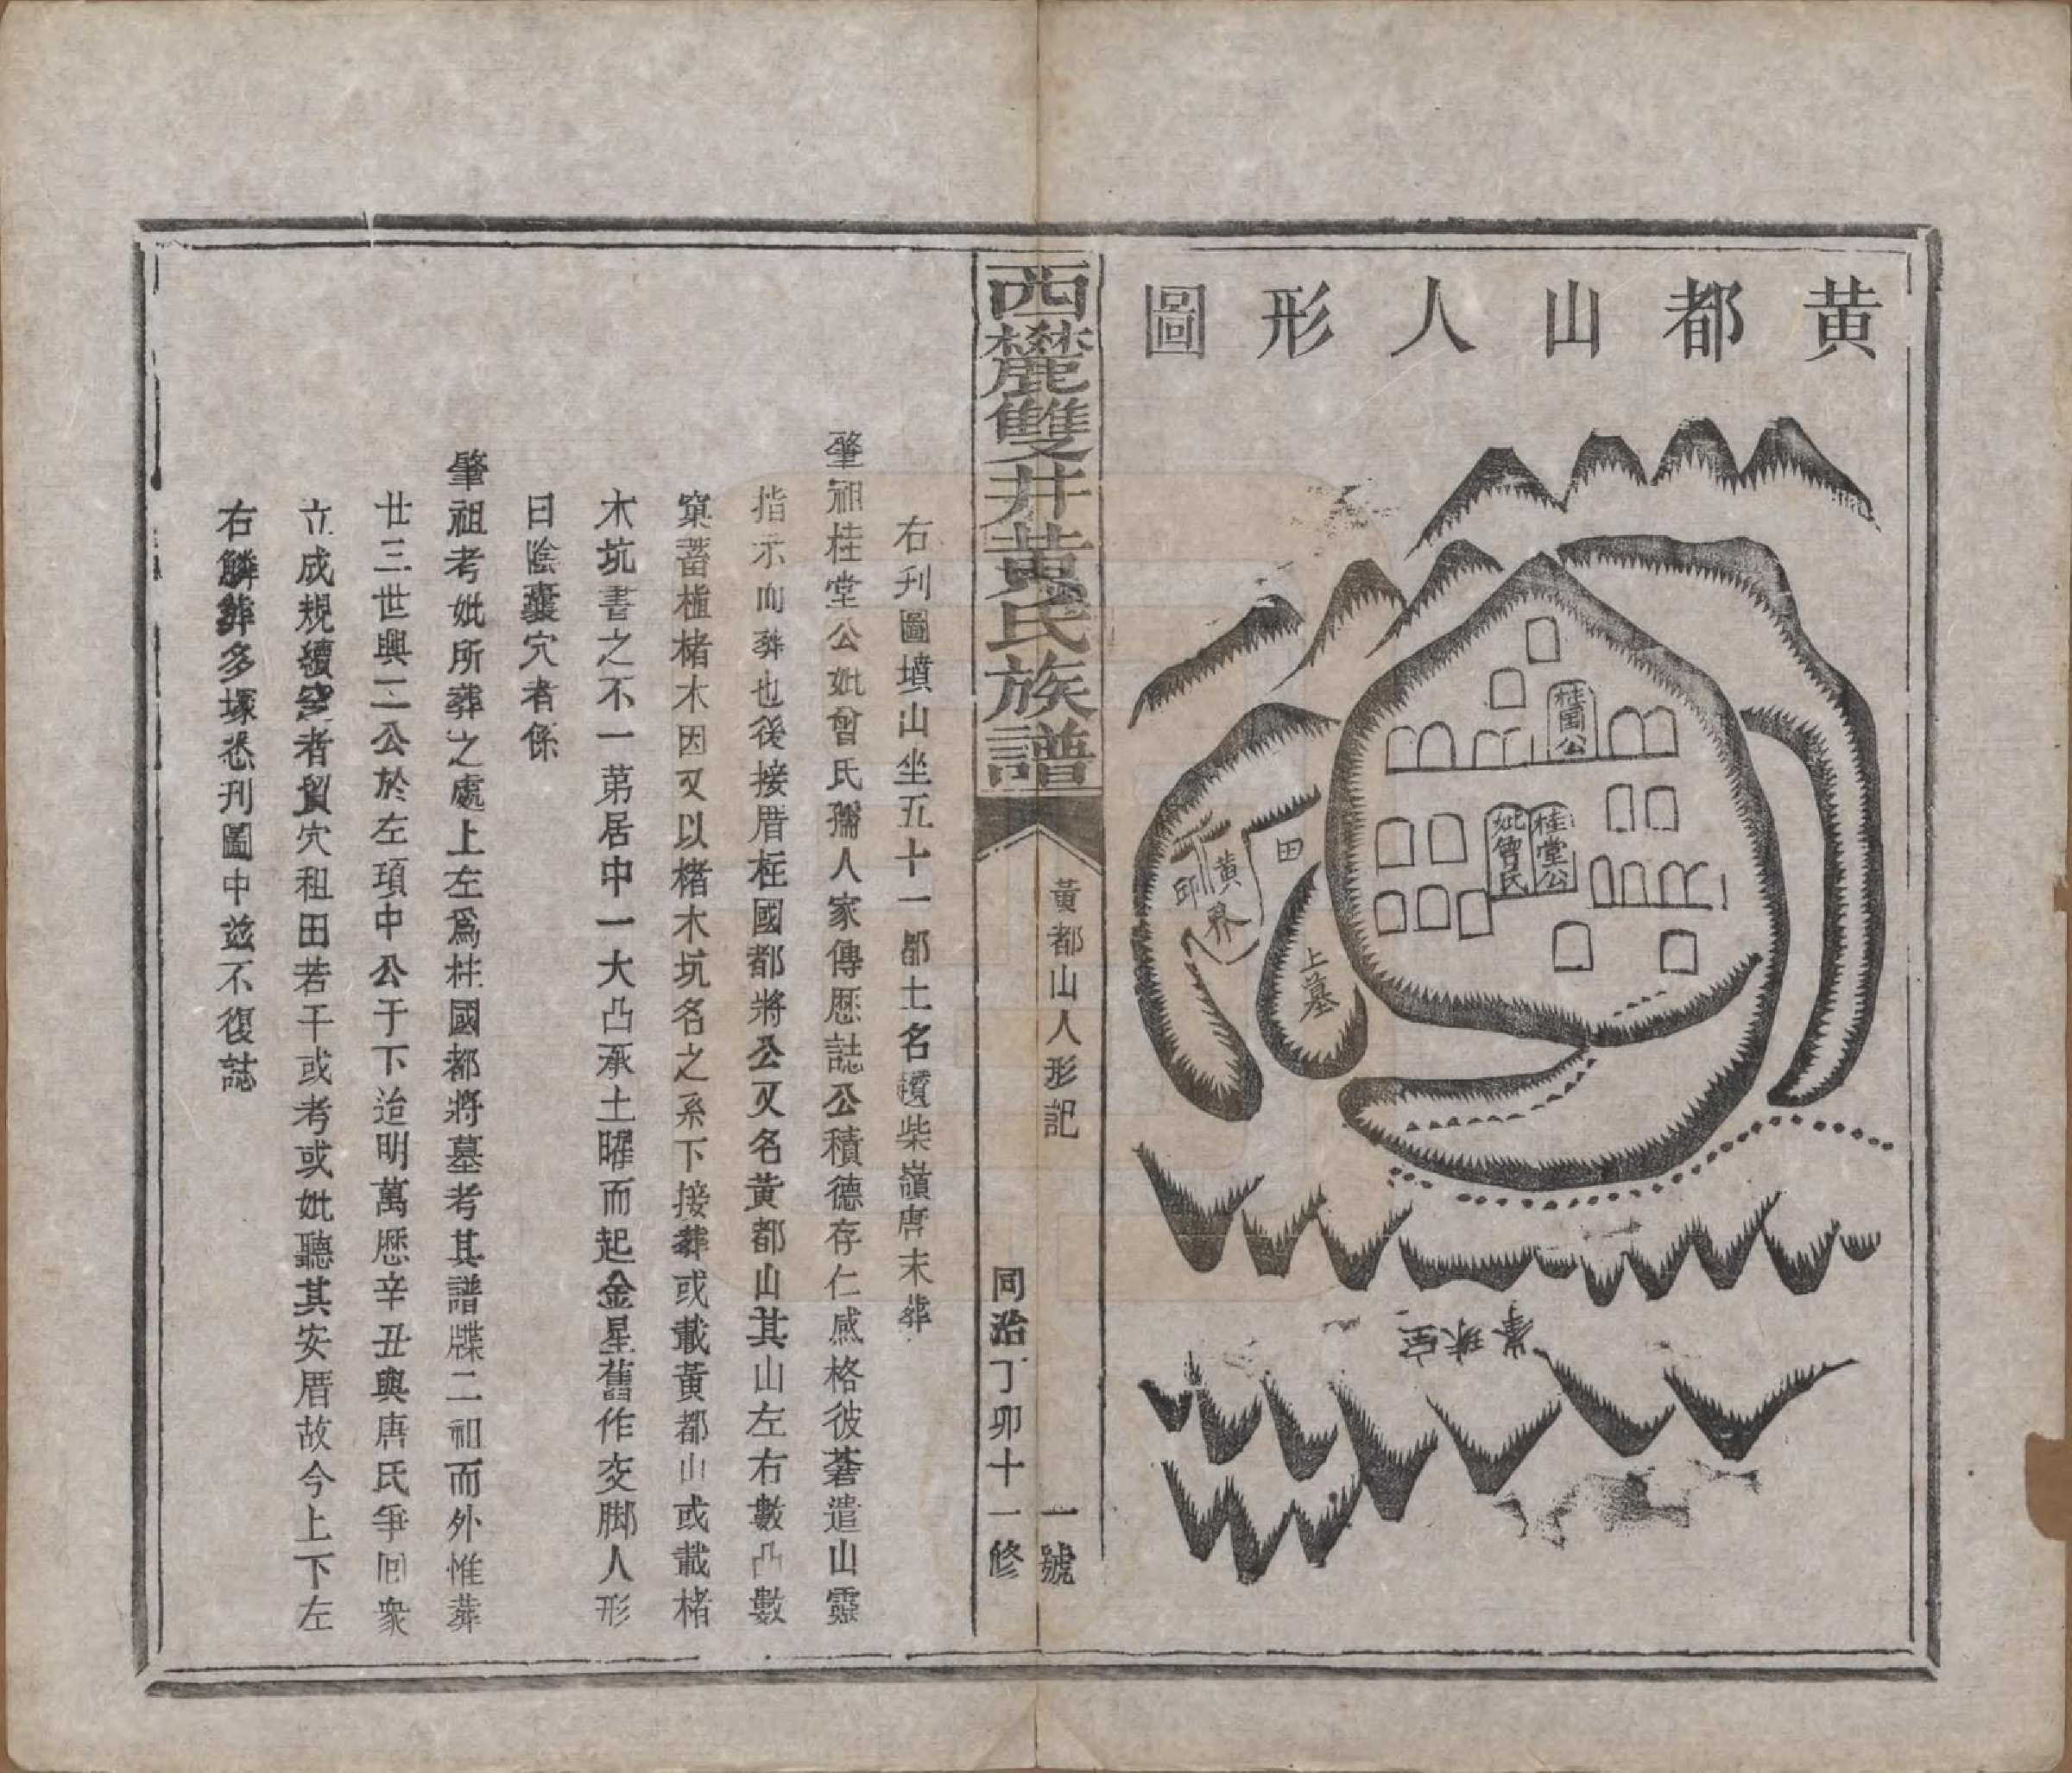 黄都山人形圖
桂圃公
桂堂公
妣曾氏
田
黄界
印
上墓
黃都山人形記
一號
西麓雙井黃氏族譜
同治丁卯十一修
右刋圖墳山坐五十一都土名柴嶺唐末葬
肇祖桂堂公妣曾氏孺人家傳歷誌公積德存仁感格彼蒼遣山靈
指示而葬也後接厝柱國都將公又名黃都山其山左右數凸數
窠蓄植楮木因又以楮木坑名之系下接葬或載黃都山或載楮
木坑書之不一第居中一大凸承土曜而起金星舊作交脚人形
曰陰囊穴者係
肇祖考妣所葬之處上左爲柱國都將墓考其譜牒二祖而外惟葬
廿三世興二公於左項中公于下迨明萬歷辛丑與唐氏爭回衆
立成規續空者貿穴租田若干或考或妣聽其安厝故今上下左
右鱗葬多塚悉刋圖中茲不復誌